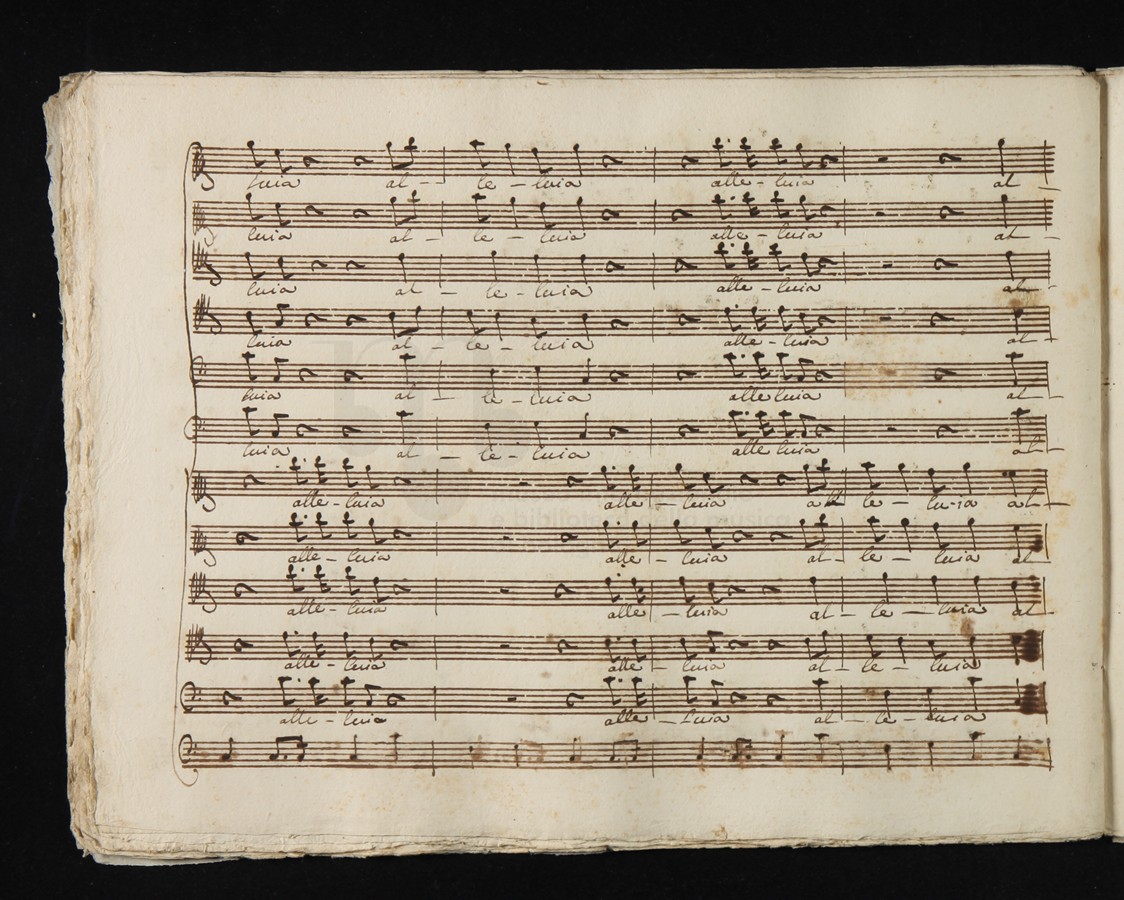 luia al - le - luia alle - luia al -
luia al - le - luia alle - luia al -
luia al - le - luia alle - luia al -
luia al - le - luia alle - luia al -
luia al - le - luia alleluia al -
luia al - le - luia alle luia al -
alle - luia alle - luia al le - lu-ia al -
alle - luia alle - luia al - le - luia al
alle - luia alle - luia al - le - luia al -
alle - luia alle - luia al - le - luia
alle - luia alle - Luia al - le - luia